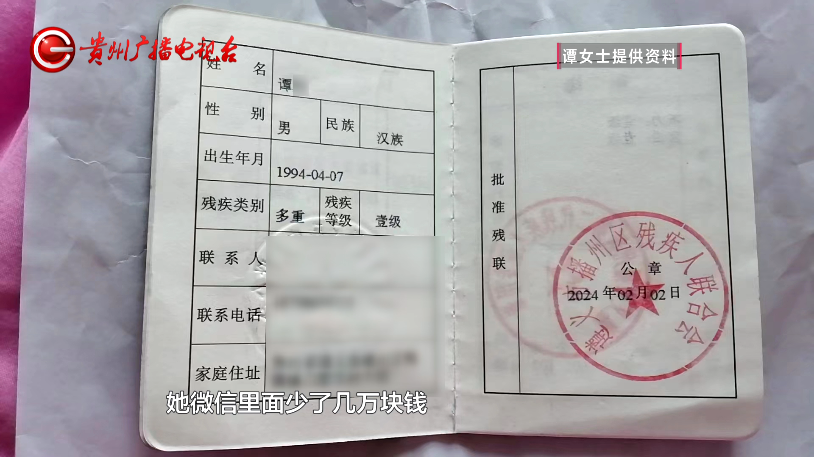 贵州广播电视台
谭女士提供资料
姓 名 谭
性 别 男 民族 汉族
出生年月 1994-04-07
残疾类别 多重 残疾等级 壹级
联系人
联系电话
家庭住址
批准残联
遵义市播州区残疾人联合会
公 章
2024年02月02日
她微信里面少了几万块钱